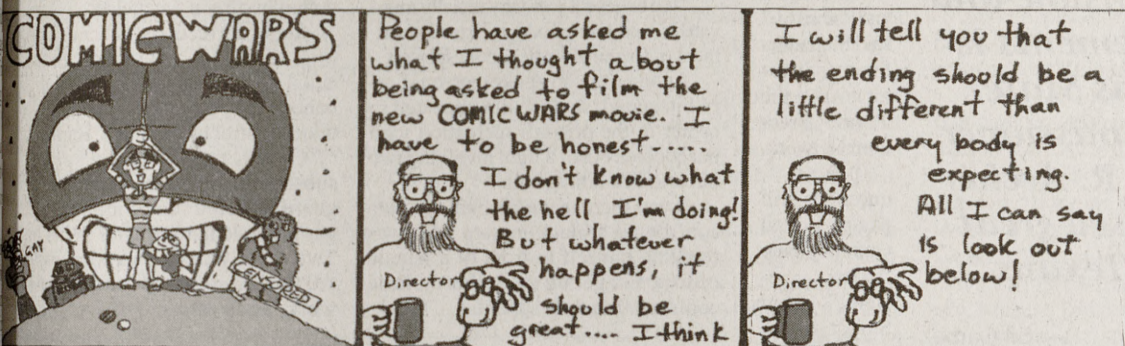 COMIC WARS
GAY
CENSORED
People have asked me
what I thought about
being asked to film the
new COMIC WARS movie. I
have to be honest.....
I don't know what
the hell I'm doing!
But whatever
happens, it
should be
great.... I think
Director
I will tell you that
the ending should be a
little different than
every body is
expecting.
All I can say
is look out
below!
Director